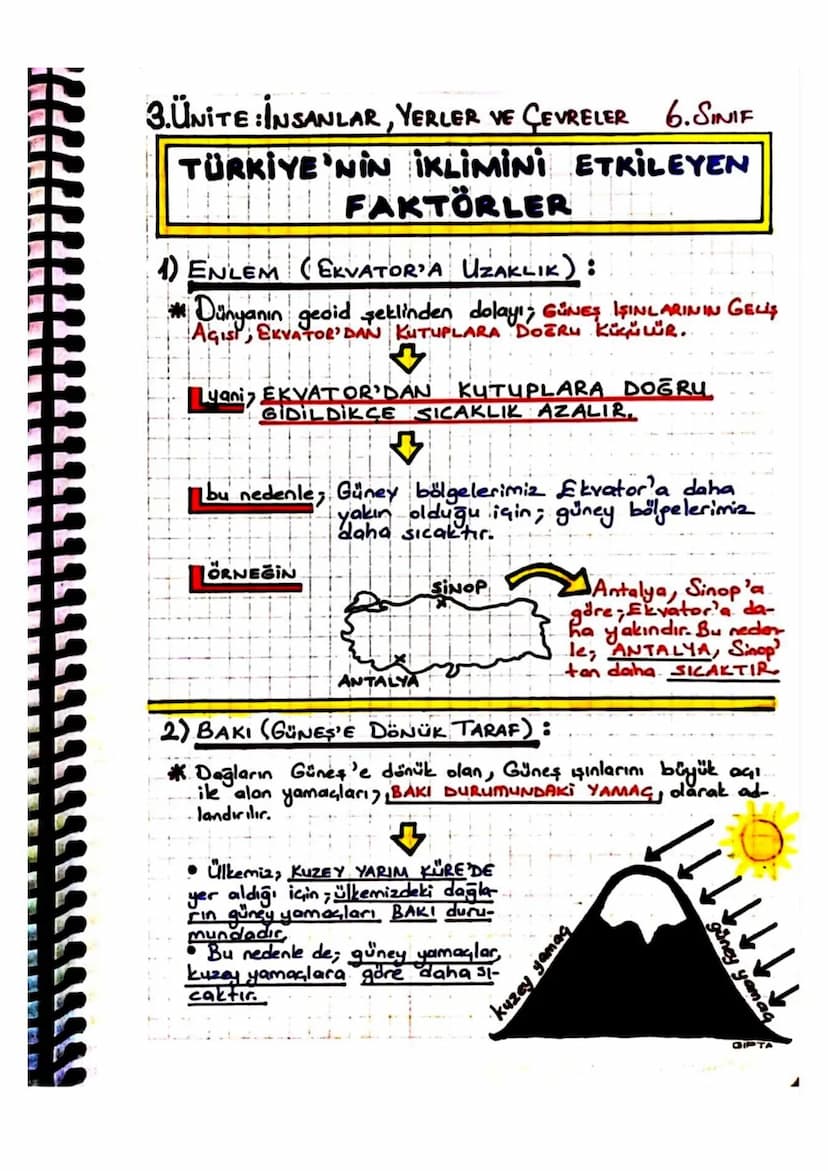 3.ÜNİTE:İNSANLAR, YERLER VE ÇEVRELER 6.SINIF
TÜRKİYE'NİN İKLİMİNİ ETKİLEYEN
FAKTÖRLER
1) ENLEM (EKVATOR'A UZAKLIK):
* Dünyanın geoid şeklinden dolayı; GÜNEŞ IŞINLARININ GELİŞ
AÇISI, EKVATOR'DAN KUTUPLARA DOĞRU KÜÇÜLÜR.
yani; EKVATOR'DAN KUTUPLARA DOĞRU
GİDİLDİKÇE SICAKLIK AZALIR.
bu nedenle; Güney bölgelerimiz Ekvator'a daha
yakın olduğu için; güney bölgelerimiz
daha sıcaktır.
ÖRNEĞİN
SİNOP
ANTALYA
Antalya, Sinop'a
göre; Ekvator'a da-
ha yakındır. Bu neden-
le; ANTALYA, Sinop'
tan daha SICAKTIR
2) BAKI (GÜNEŞ'E DÖNÜK TARAF):
* Dağların Güneş'e dönük olan, Güneş ışınlarını büyük açı
ile alan yamaçları; BAKI DURUMUNDAKİ YAMAÇ, olarak ad-
landırılır.
• Ülkemiz; KUZEY YARIM KÜRE'DE
yer aldığı için; ülkemizdeki dağla-
rın güney yamaçları BAKI duru-
mundadır.
• Bu nedenle de; güney yamaçlar,
kuzey yamaçlara göre daha sı-
caktır.
kuzey yamaç
güney yamaç
GIPTA